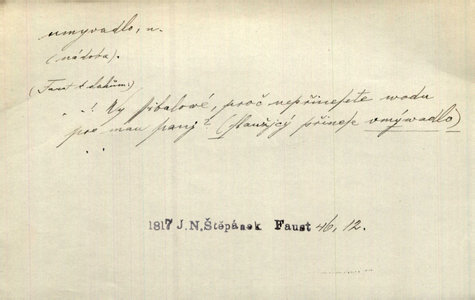 umyvadlo, n.
(nádoba).
(Faust
..! Vy šibalové, proč nepřinesete wodu
pro mau panj? (Slaužjcý přinese vmýwadlo)
1817 J.N.Štěpánek Faust 46, 12.